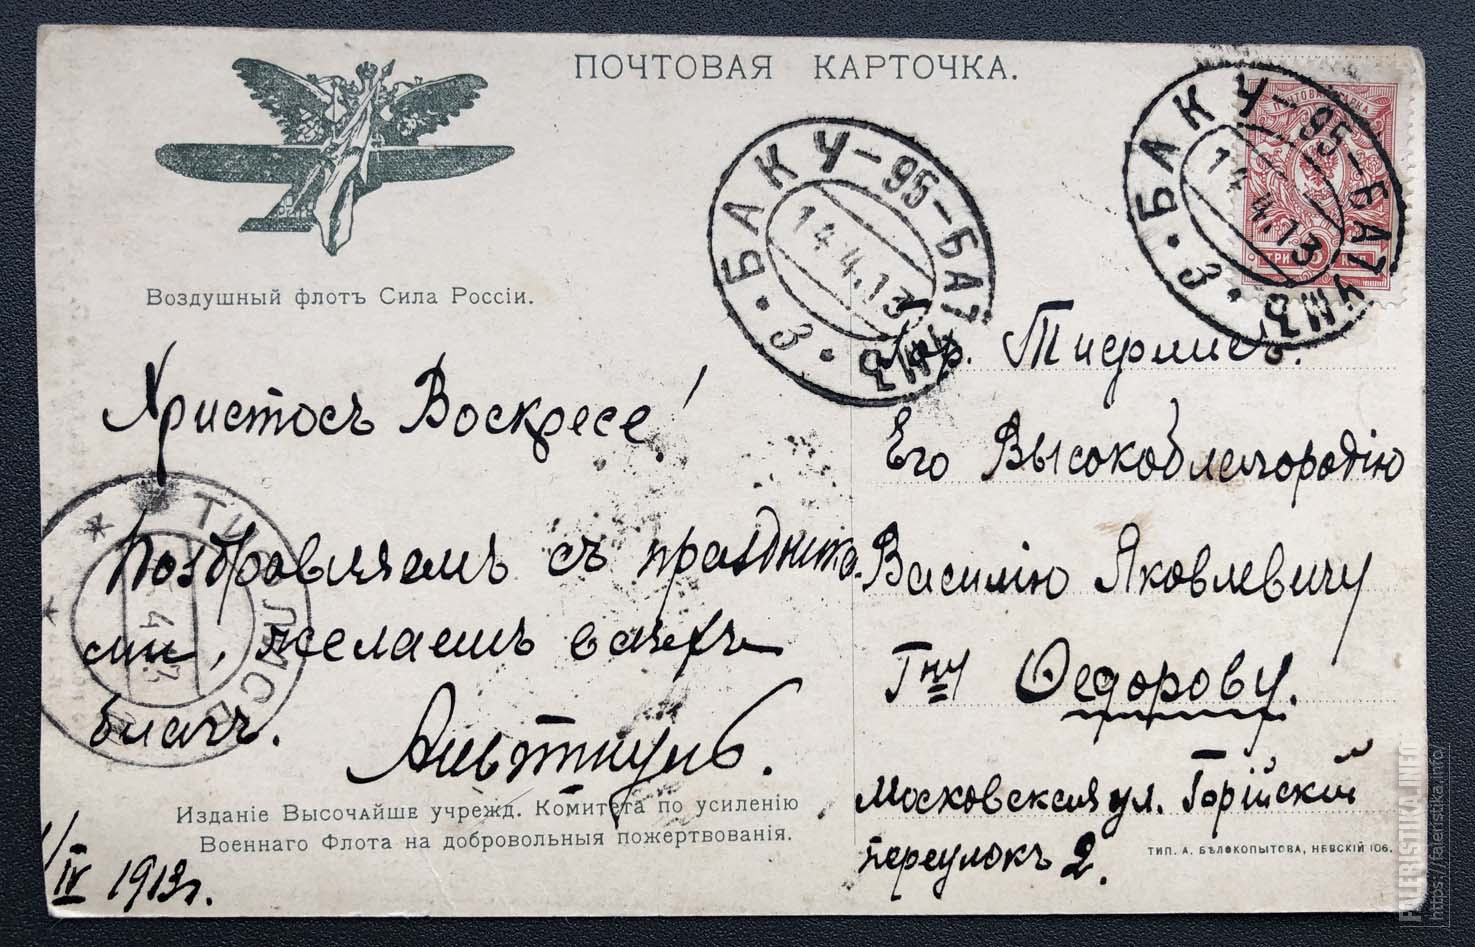 ПОЧТОВАЯ КАРТОЧКА.
Воздушный флотъ Сила Россіи.
БАКУ-95-БАТУМЪ
14.4.13
З
БАКУ-95-БАТУМЪ
14.4.13
З
ПОЧТОВАЯ МАРКА
ТРИ КОП
Христосъ Воскресе!
Поздравляемъ съ праздника
ми, желаемъ всѣхъ
благъ.
ТИФЛИСЪ
Издание Высочайше учрежд. Комитета по усиленію
Военнаго Флота на добровольныя пожертвованія.
IV 1913г.
гор. Тифлисъ.
Его Высокоблагородію
Василію Яковлевичу
Гну Федорову.
Московская ул. Горійскій
переулокъ 2.
ТИП. А. БѢЛОКОПЫТОВА, НЕВСКІЙ 106.
FALERISTIKA.INFO
https://faleristika.info